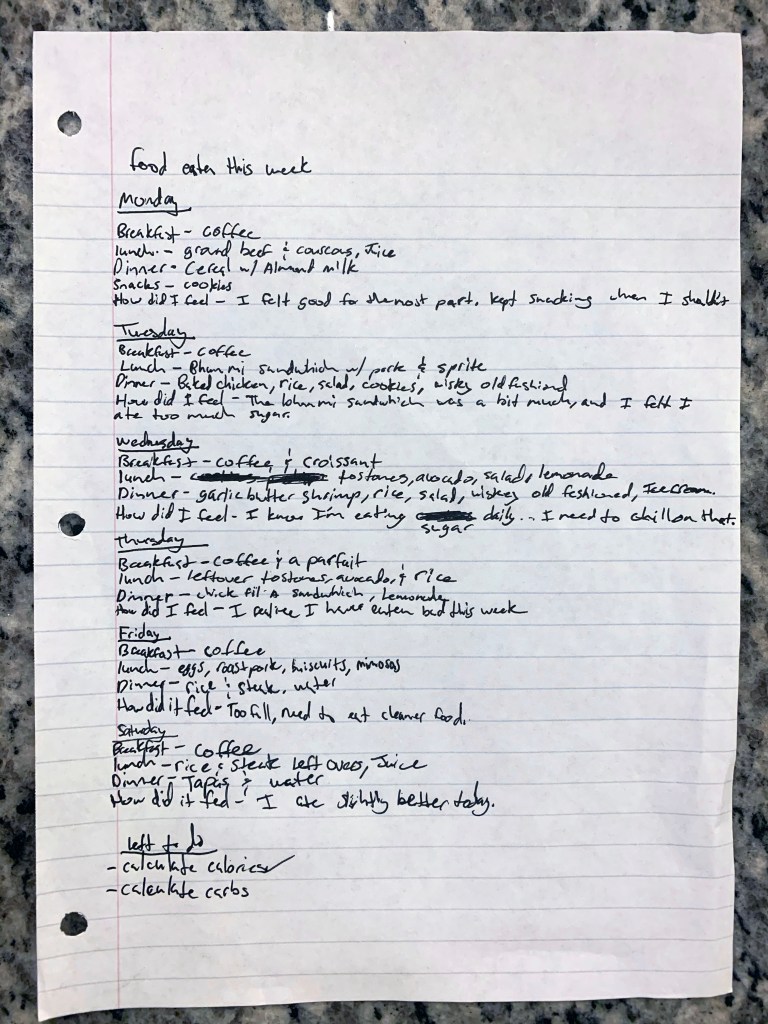 food eaten this week
Monday
Breakfast - coffee
lunch - ground beef & couscous, Juice
Dinner - Cereal w/ Almond milk
Snacks - cookies
How did I feel - I felt good for the most part. kept snacking when I shouldn't
Tuesday
Breakfast - coffee
Lunch - Bhan mi sandwhich w/ pork & sprite
Dinner - Baked chicken, rice, salad, cookies, wiskey old fashiond
How did I feel - The bhan mi sandwhich was a bit much, and I felt I
ate too much sugar.
Wednesday
Breakfast - coffee & croissant
lunch - tostones, avocado, salad, lemonade
Dinner - garlic butter shrimp, rice, salad, wiskey old fashioned, Icecream.
How did I feel - I know I'm eating sugar daily... I need to chill on that.
Thursday
Breakfast - coffee & a parfait
lunch - leftover tostones, avocado, & rice
Dinner - chick fil-A sandwhich, Lemonade
How did I feel - I realize I have eaten bad this week
Friday
Breakfast - coffee
lunch - eggs, roast pork, biscuits, mimosas
Dinner - rice & steak, water
How did it feel - Too full, need to eat cleaner food.
Saturday
Breakfast - coffee
lunch - rice & steak left overs, Juice
Dinner - Tapas & water
How did it feel - I ate slightly better today.
left to do
- calculate calories ✓
- calculate carbs